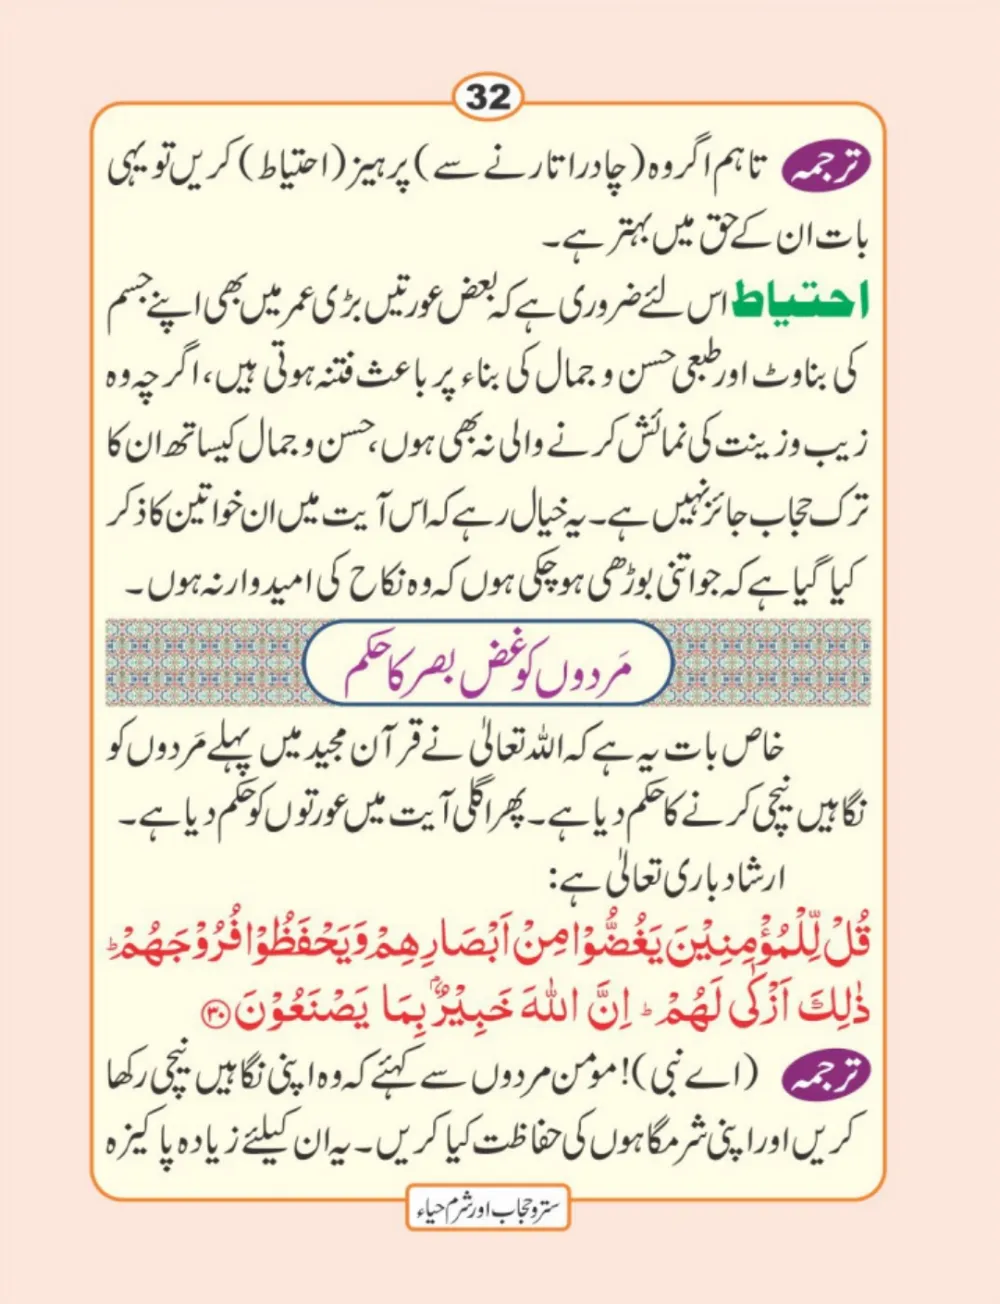 32
ترجمہ تاہم اگر وہ (چادر اتارنے سے) پرہیز (احتیاط) کریں تو یہی
بات ان کے حق میں بہتر ہے۔
احتیاط اس لئے ضروری ہے کہ بعض عورتیں بڑی عمر میں بھی اپنے جسم
کی بناوٹ اور طبعی حسن و جمال کی بناء پر باعث فتنہ ہوتی ہیں، اگرچہ وہ
زیب و زینت کی نمائش کرنے والی نہ بھی ہوں، حسن و جمال کیساتھ ان کا
ترک حجاب جائز نہیں ہے۔ یہ خیال رہے کہ اس آیت میں ان خواتین کا ذکر
کیا گیا ہے کہ جو اتنی بوڑھی ہو چکی ہوں کہ وہ نکاح کی امیدوار نہ ہوں۔
مَردوں کو غض بصر کا حکم
خاص بات یہ ہے کہ اللہ تعالیٰ نے قرآن مجید میں پہلے مَردوں کو
نگاہیں نیچی کرنے کا حکم دیا ہے۔ پھر اگلی آیت میں عورتوں کو حکم دیا ہے۔
ارشاد باری تعالیٰ ہے:
قُلْ لِّلْمُؤْمِنِيْنَ يَغُضُّوْا مِنْ اَبْصَارِهِمْ وَيَحْفَظُوْا فُرُوْجَهُمْ ؕ
ذٰلِكَ اَزْكٰى لَهُمْ ؕ اِنَّ اللهَ خَبِيْرٌۢ بِمَا يَصْنَعُوْنَ ﴿۳۰﴾
ترجمہ (اے نبی)! مؤمن مردوں سے کہئے کہ وہ اپنی نگاہیں نیچی رکھا
کریں اور اپنی شرمگاہوں کی حفاظت کیا کریں۔ یہ ان کیلئے زیادہ پاکیزہ
ستر و حجاب اور شرم حیاء